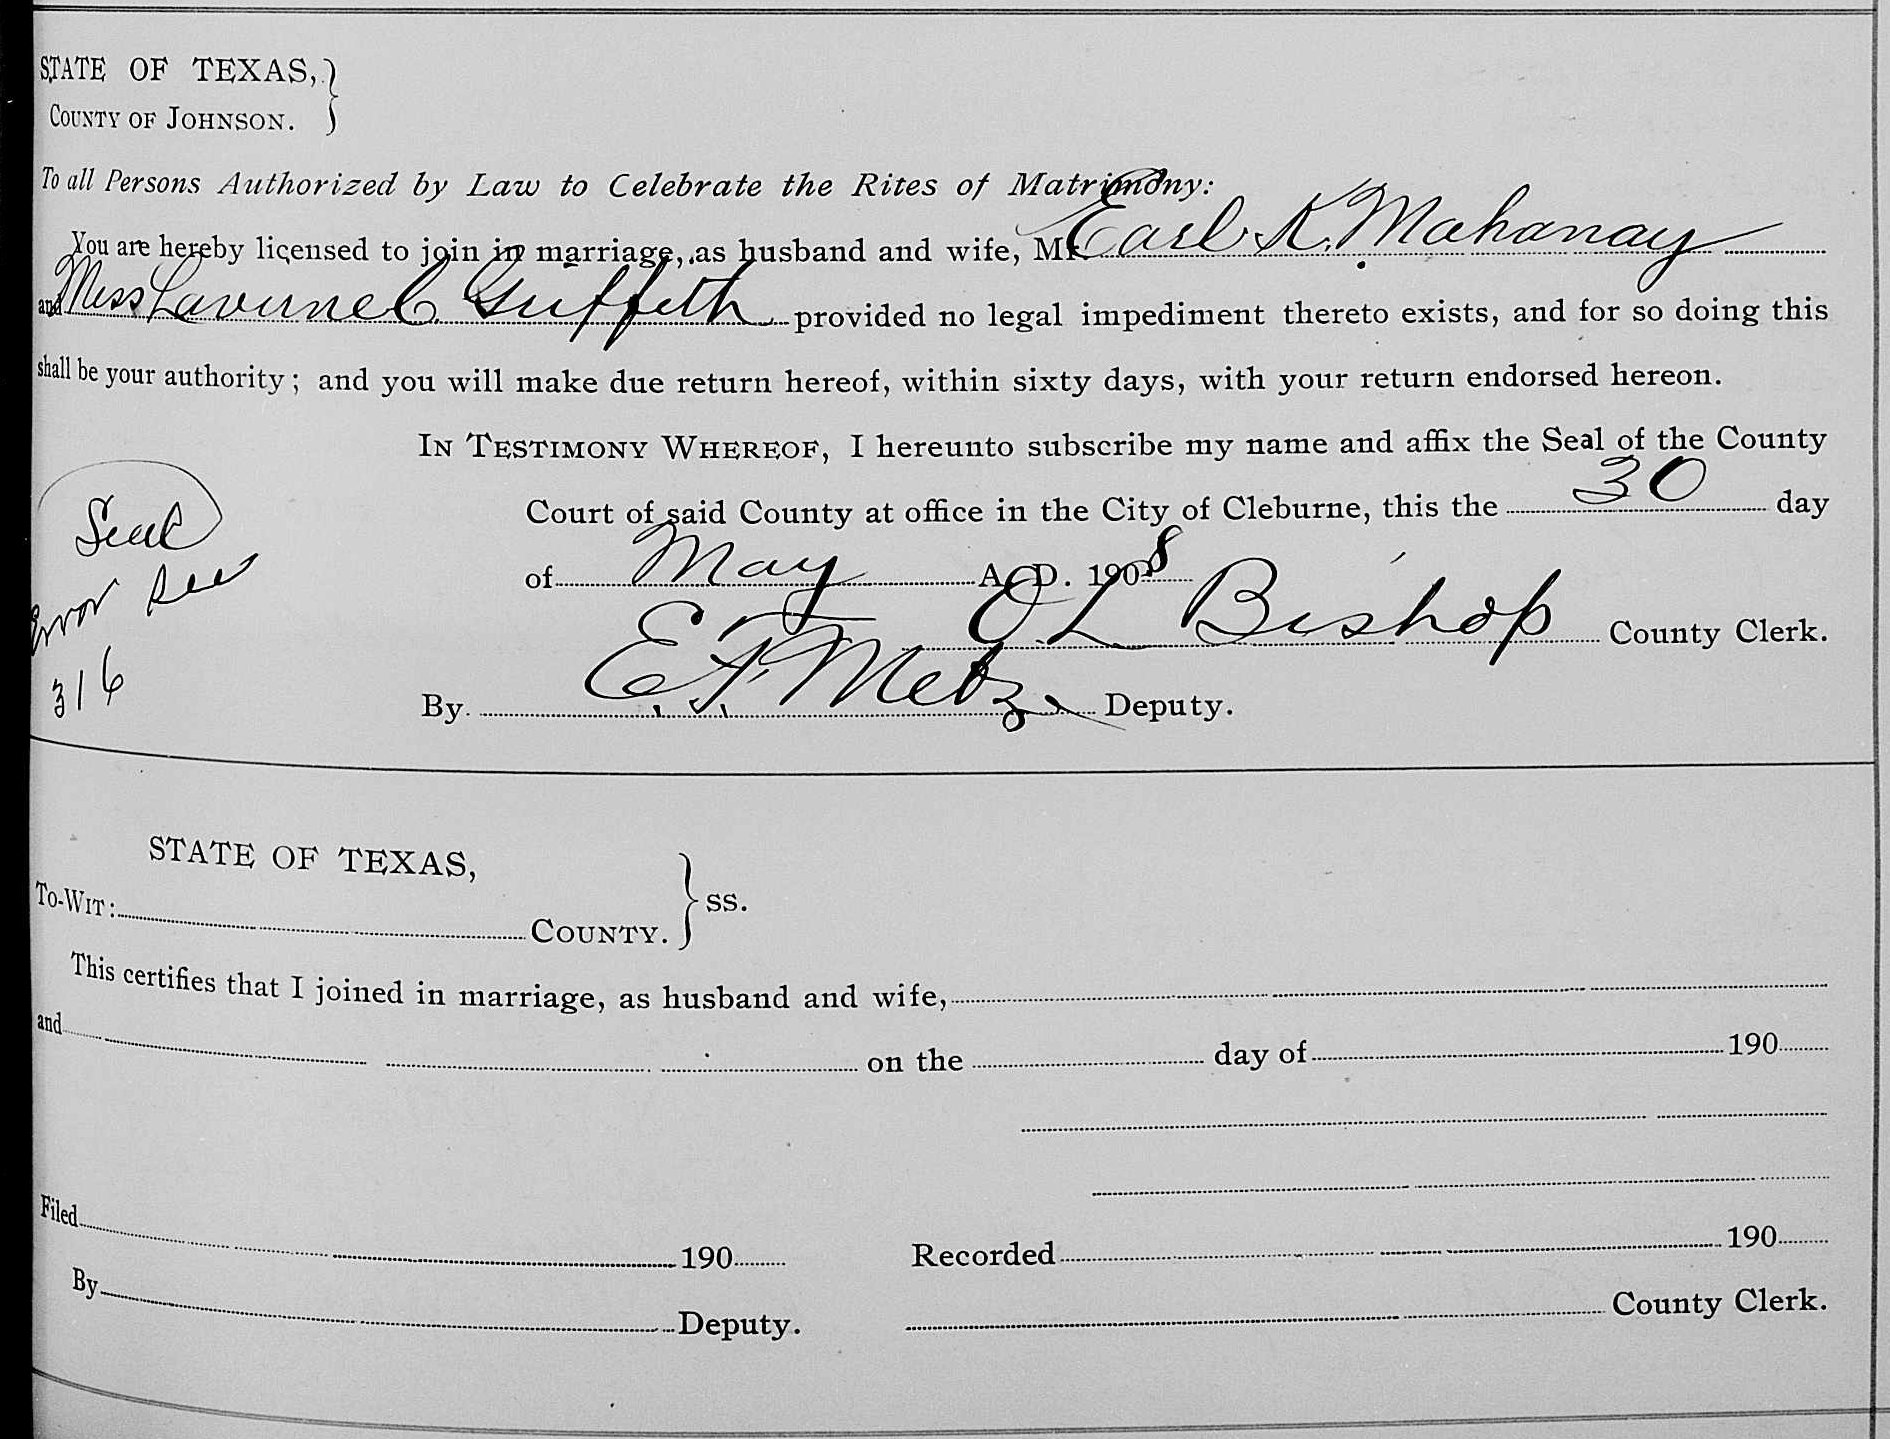 STATE OF TEXAS,
COUNTY OF JOHNSON.
To all Persons Authorized by Law to Celebrate the Rites of Matrimony:
You are hereby licensed to join in marriage, as husband and wife, Mr. Earl K. Mahanay
and Miss Lavurne C. Griffeth provided no legal impediment thereto exists, and for so doing this
shall be your authority; and you will make due return hereof, within sixty days, with your return endorsed hereon.
IN TESTIMONY WHEREOF, I hereunto subscribe my name and affix the Seal of the County
Court of said County at office in the City of Cleburne, this the 30 day
of May A. D. 1908
Seal
Error See
316
O L Bishop County Clerk.
By E. F. Metz Deputy.
STATE OF TEXAS,
TO-WIT: COUNTY. ss.
This certifies that I joined in marriage, as husband and wife,
and on the day of 190
Filed 190 Recorded 190
By Deputy. County Clerk.